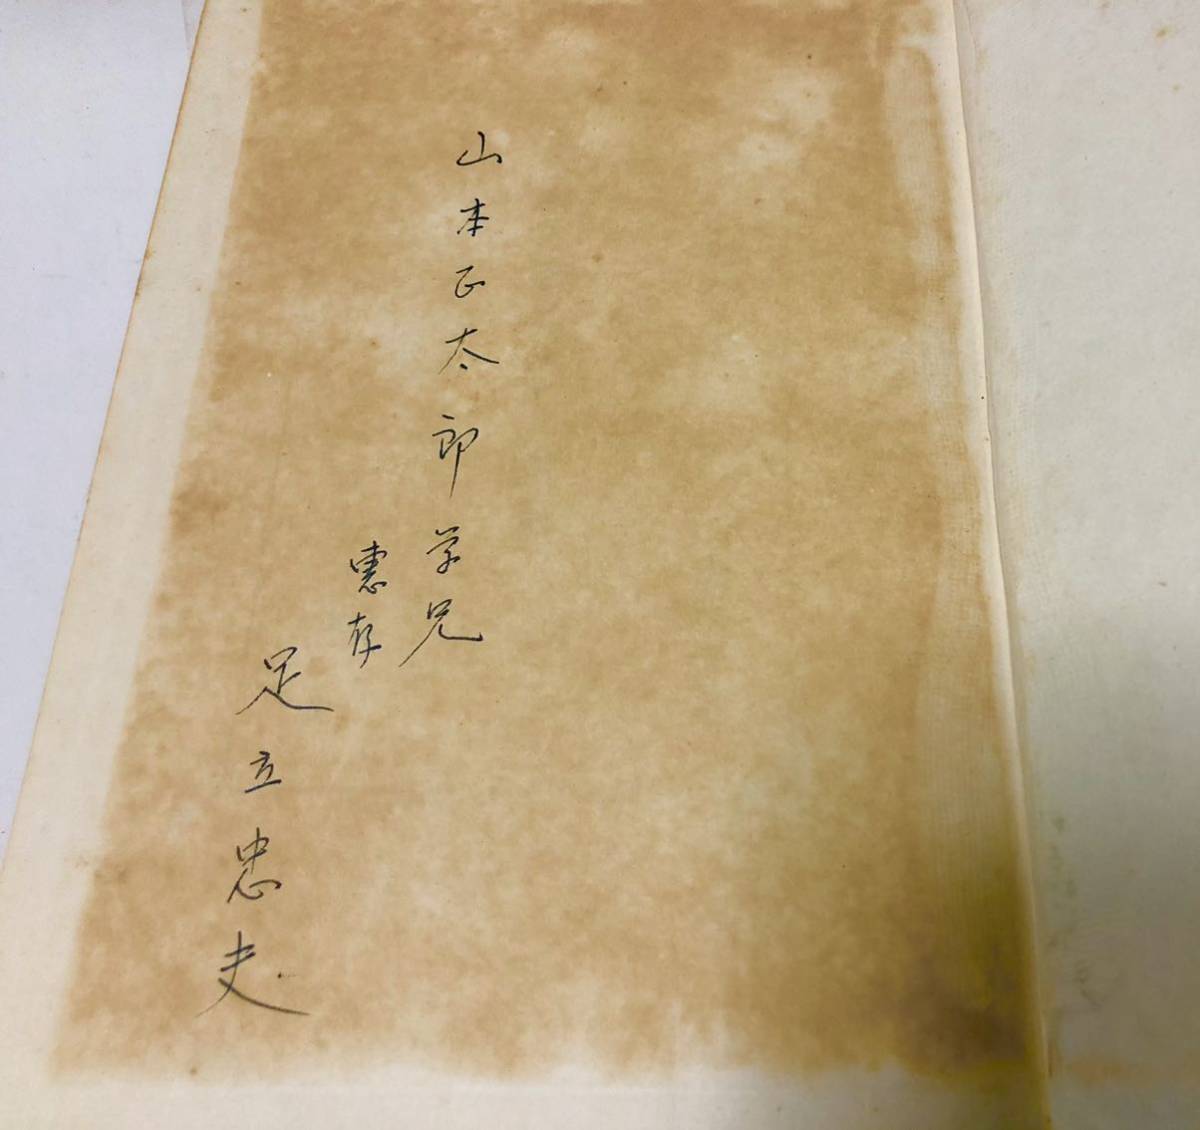 山本正太郎学兄
恵存
足立忠夫